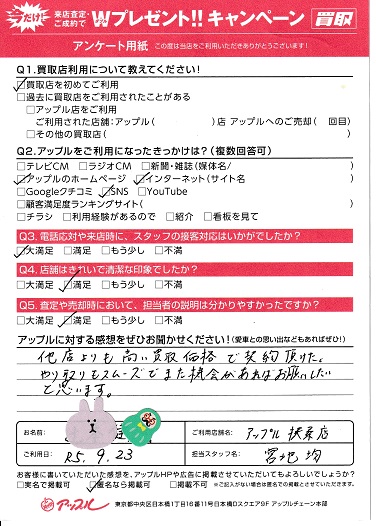 だけ 来店査定・ご成約で Wプレゼント!! キャンペーン 買取
アンケート用紙 この度は当店をご利用いただきありがとうございます!
Q1.買取店利用について教えてください!
☑買取店を初めてご利用
□過去に買取店をご利用されたことがある
□アップル店をご利用
ご利用された店舗:アップル( )店 アップルへのご売却( 回目)
□その他の買取店( )
Q2.アップルをご利用になったきっかけは?(複数回答可)
□テレビCM □ラジオCM □新聞・雑誌(媒体名/ )
☑アップルのホームページ ☑インターネット(サイト名 )
□Googleクチコミ ☑SNS □YouTube
□顧客満足度ランキングサイト( )
□チラシ □利用経験があるので □紹介 □看板を見て
Q3.電話応対や来店時に、スタッフの接客対応はいかがでしたか?
☑大満足 □満足 □もう少し □不満
Q4.店舗はきれいで清潔な印象でしたか?
□大満足 ☑満足 □もう少し □不満
Q5.査定や売却時において、担当者の説明は分かりやすかったですか?
□大満足 ☑満足 □もう少し □不満
アップルに対する感想をぜひお聞かせください!(愛車との思い出などもあればぜひ!)
他店よりも高い買取価格で契約頂けた。
やり取りもスムーズでまた機会があればお願いしたい
と思います。
お名前: ご利用店舗名: アップル扶桑店
ご利用日: R5.9.23 担当スタッフ名: 宮地 均
お客様に書いていただいた感想を、アップルHPや広告に掲載させていただいてもよろしいでしょうか?
□実名で掲載可 ☑匿名なら掲載可 □掲載不可 ※ご記入がない場合は匿名での掲載可とさせていただきます。
アップル 東京都中央区日本橋1丁目16番11号日本橋Dスクエア9F アップルチェーン本部